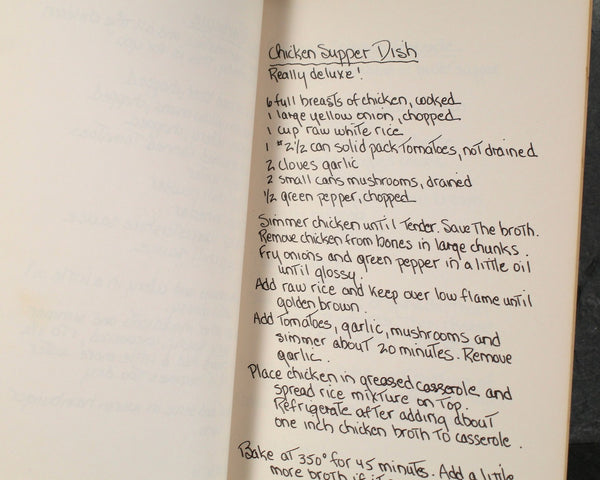 Chicken Supper Dish
Really deluxe!
6 full breasts of chicken, cooked
1 large yellow onion, chopped
1 cup raw white rice
1 #2 1/2 can solid pack tomatoes, not drained
2 cloves garlic
2 small cans mushrooms, drained
1/2 green pepper, chopped
Simmer chicken until tender. Save the broth.
Remove chicken from bones in large chunks.
Fry onions and green pepper in a little oil
until glossy.
Add raw rice and keep over low flame until
golden brown.
Add tomatoes, garlic, mushrooms and
simmer about 20 minutes. Remove
garlic.
Place chicken in greased casserole and
spread rice mixture on top.
Refrigerate after adding about
one inch chicken broth to casserole.
Bake at 350° for 45 minutes. Add a little
more broth if